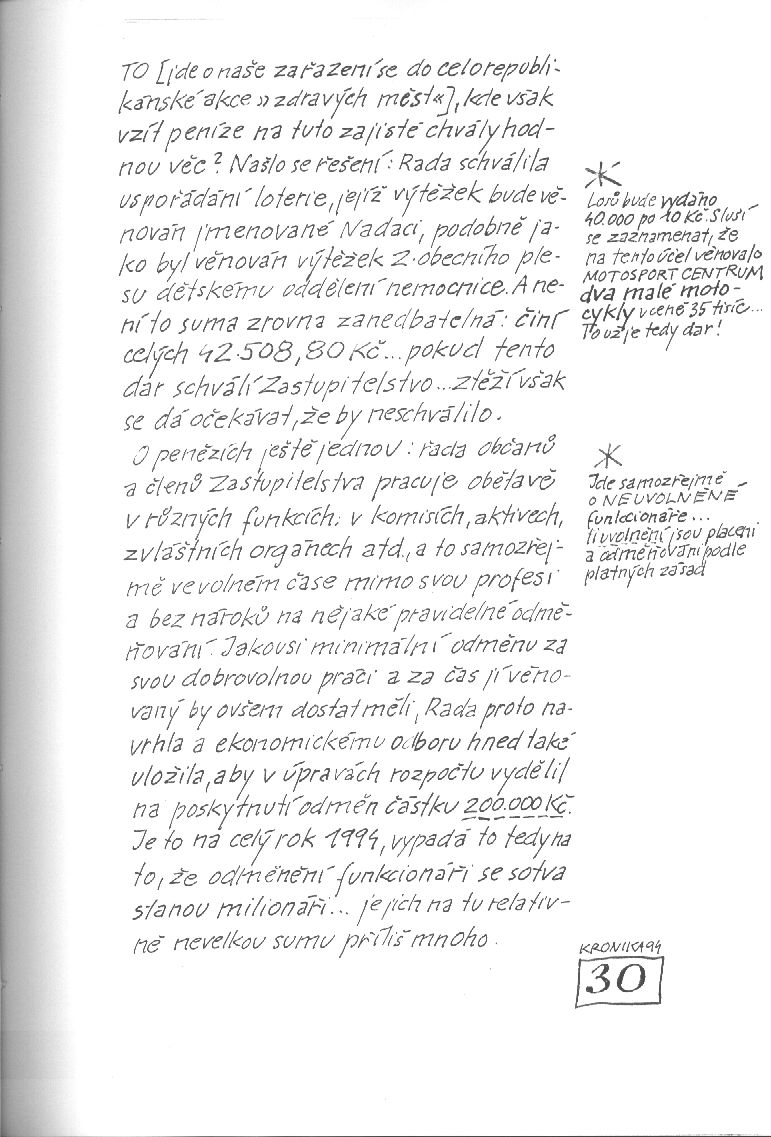 TO [jde o naše zařazení se do celorepubli-
kánské akce »zdravých měst«], kde však
vzít peníze na tuto zajisté chvályhod-
nou věc? Našlo se řešení: Rada schválila
uspořádání loterie, jejíž výtěžek bude vě-
nován jmenované Nadaci, podobně ja-
ko byl věnován výtěžek 2. obecního ple-
su dětskému oddělení nemocnice. A ne-
ní to suma zrovna zanedbatelná: činí
celých 42.508,80 Kč... pokud tento
dar schválí Zastupitelstvo... ztěží však
se dá očekávat, že by neschválilo.
O penězích ještě jednou: řada občanů
a členů Zastupitelstva pracuje obětavě
v různých funkcích; v komisích, aktivech,
zvláštních orgánech atd., a to samozřej-
mě ve volném čase mimo svou profesi
a bez nároků na nějaké pravidelné odmě-
ňování. Jakousi minimální odměnu za
svou dobrovolnou práci a za čas jí věno-
vaný by ovšem dostat měli, Rada proto na-
vrhla a ekonomickému odboru hned také
uložila, aby v úpravách rozpočtu vydělil
na poskytnutí odměn částku 200.000 Kč.
Je to na celý rok 1994, vypadá to tedy na
to, že odměnění funkcionáři se sotva
stanou milionáři... je jich na tu relativ-
ně nevelkou sumu příliš mnoho.
*
Losů bude vydáno
40.000 po 10 Kč. Sluší
se zaznamenat, že
na tento účel věnovalo
MOTOSPORT CENTRUM
dva malé moto-
cykly v ceně 35 tisíc...
To už je tedy dar!
*
Jde samozřejmě
o NEUVOLNĚNÉ
funkcionáře...
ti uvolnění jsou placeni
a odměňováni podle
platných zásad
KRONIKA 94
30